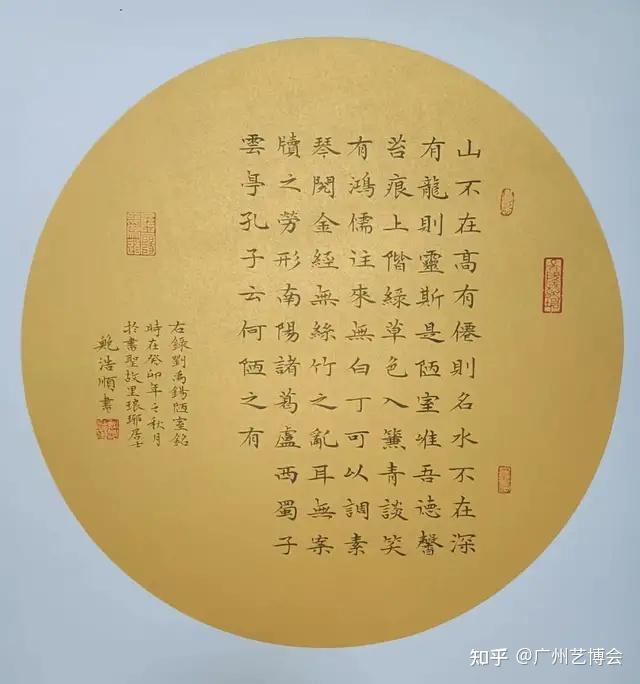 山不在高有僊則名水不在深
有龍則靈斯是陋室唯吾德馨
苔痕上階綠草色入簾青談笑
有鴻儒往來無白丁可以調素
琴閱金經無絲竹之亂耳無案
牘之勞形南陽諸葛廬西蜀子
雲亭孔子云何陋之有
右錄劉禹錫陋室銘
時在癸卯年之秋月
於書聖故里琅琊居士
鮑浩順書
知乎 @广州艺博会